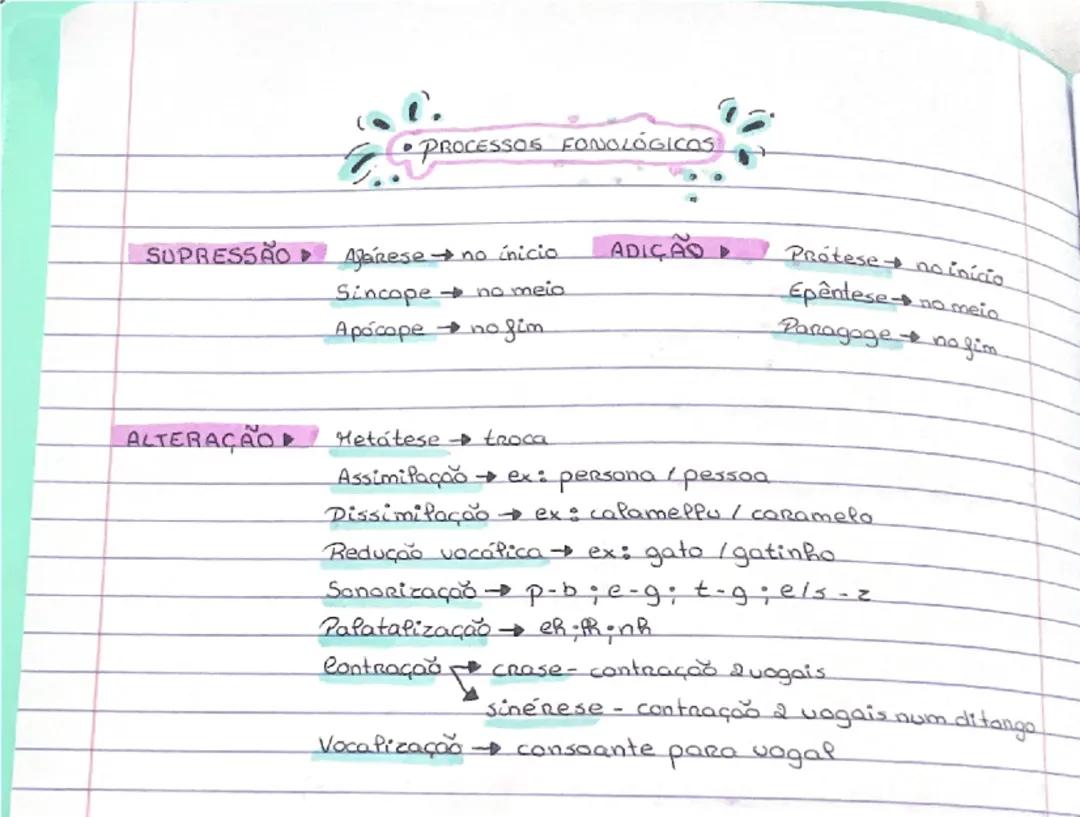 • PROCESSOS FONOLÓGICOS
SUPRESSÃO ▸ Aférese → no ínicio
Síncope → no meio
Apócope → no fim
ADIÇÃO ▸ Prótese → no início
Epêntese → no meio
Paragoge → no fim
ALTERAÇÃO ▸ Metátese → troca
Assimilação → ex: persona / pessoa
Dissimilação → ex: calamellu / caramelo
Redução vocálica → ex: gato / gatinho
Sonorização → p-b ; c-g ; t-g ; c/s - z
Palatalização → ch ; lh ; nh
Contração → crase - contração 2 vogais
sinérese - contração 2 vogais num ditongo
Vocalização → consoante para vogal